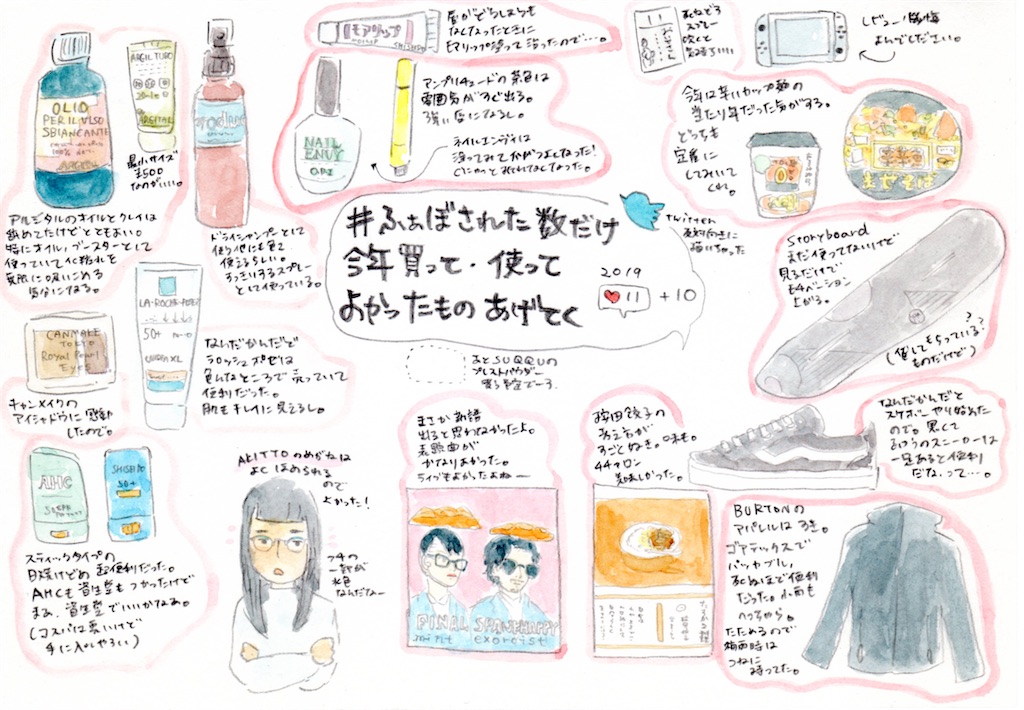 #ふぁぼされた数だけ
今年買って・使って
よかったもの あげてく
2019
11 +10
twitter
反対向きに
描いちゃった
OLIO
PER IL VISO
SBIANCANTE
ARGITAL
ARGILTUBO
ARGITAL
最小サイズ
¥500
なのがいい。
アルジタルのオイルとクレイは
舐めてたけどとてもよい。
特にオイル、ブースターとして
使っていて
気分になる。
ドライシャンプーとして
使えるらしい。
すっきりするスプレー
として使っている。
モアリップ
SHISEIDO
唇がどうしようも
なくなったときに
モアリップ塗って治ったので…。
NAIL
ENVY
OPI
アンプリチュードの茶色は
雰囲気がすぐ出る。
強い眉になるし。
ネイルエンヴィは
塗ってみてかがつよくなった!
スプレー
レビュー
よんでください。
今年は辛いカップ麺の
当たり年だった気がする。
どっちも
定番に
してみいて
くれ。
まぜそば
storyboard
まだ使ってないけど
見るだけで
モチベーション
上がる。
(貸してもらっている
ものだけど)
?
?
LA ROCHE-POSAY
50+
UVIDEA XL
なんだかんだで
ラロッシュポゼは
色んなところで売っていて
便利だった。
肌もキレイに見えるし。
CANMAKE
TOKYO
Royal Pearl
Eyes
キャンメイクの
アイシャドウに感動
したので。
あとSUQQUの
プレストパウダー
買う予定でーす。
AHC
SHISEIDO
50+
スティックタイプの
日焼けどめ 超便利だった。
AHCも資生堂もつかったけど
まあ、資生堂でいいかなあ。
(コスパは悪いけど
手に入れやすい)
AKITTOのめがねは
よくほめられる
ので
よかった!
フチの
一部が
水色
なんだなー
まさか新譜
出ると思わなかったよ。
表題曲が
かなりよかった。
ライブもよかったよねー
FINAL SPANK HAPPY
mint exorcist
餃子の
考え方が
すごく好き。味も。
44マロン
美味しかった。
なんだかんだと
スケボーやり始めた
ので。黒くて
スニーカーは
一足あると便利
だな、って…。
BURTONの
アパレルは
ゴアテックスで
パッカブル、
死ぬほど便利
だった。小雨も
へっちゃら。
たためるので
梅雨時は
つねに
持ってた。